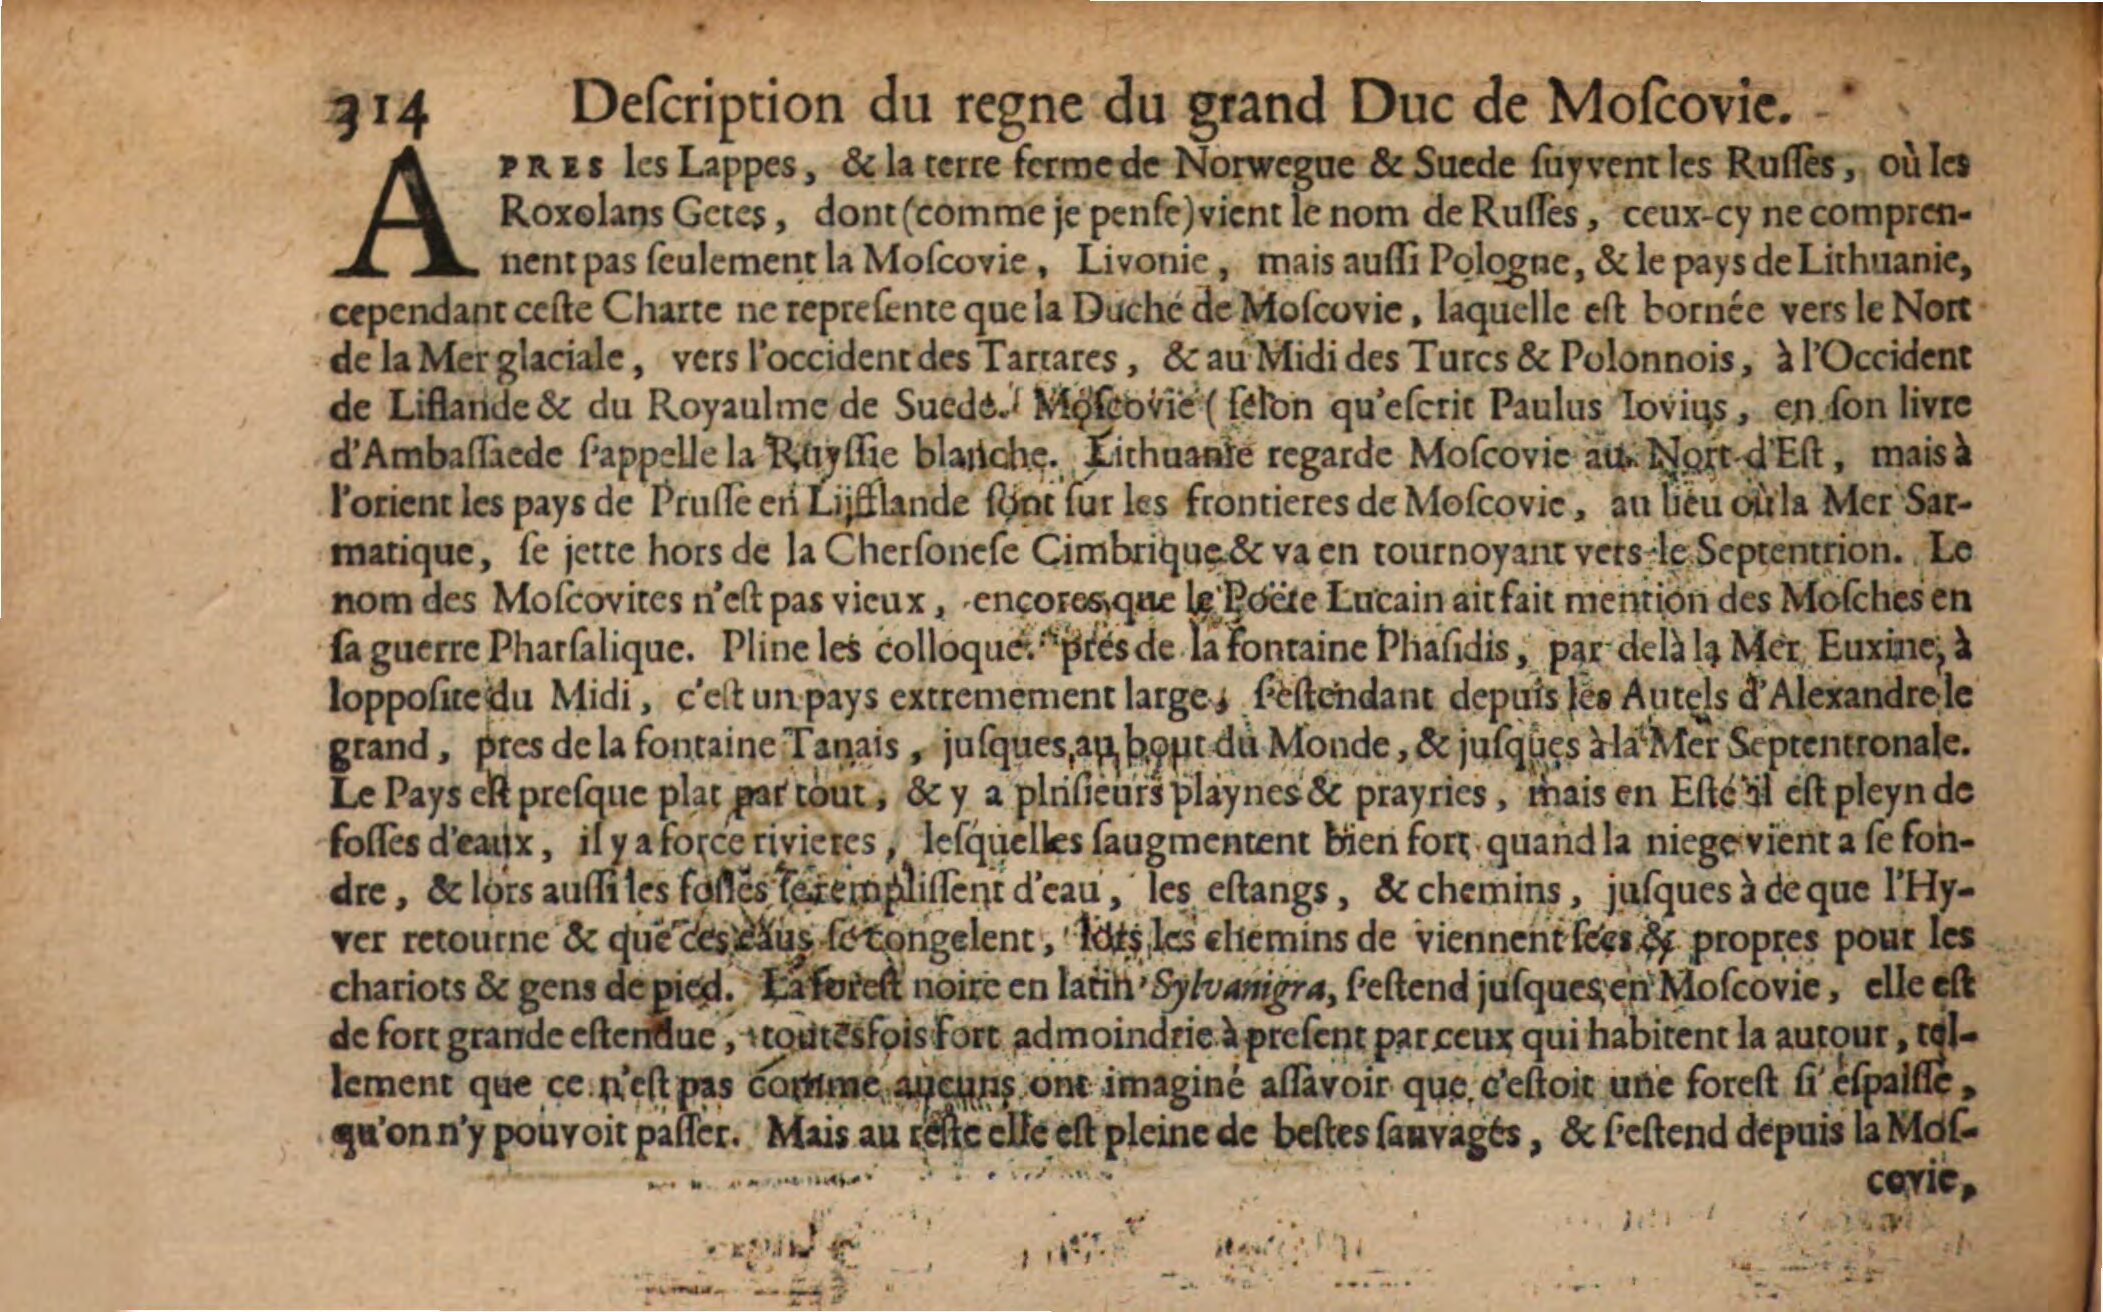 314 Deſcription du regne du grand Duc de Moſcovie.
APRES les Lappes, & la terre ferme de Norwegue & Suede ſuyvent les Ruſſes, où les
Roxolans Getes, dont (comme je penſe) vient le nom de Ruſſes, ceux-cy ne compren-
nent pas ſeulement la Moſcovie, Livonie, mais auſſi Pologne, & le pays de Lithuanie,
cependant ceſte Charte ne repreſente que la Duché de Moſcovie, laquelle eſt bornée vers le Nort
de la Mer glaciale, vers l'occident des Tartares, & au Midi des Turcs & Polonnois, à l'Occident
de Liflande & du Royaulme de Suede. Moſcovie (ſelon qu'eſcrit Paulus Iovius, en ſon livre
d'Ambaſſaede ſ'appelle la Ruyſſie blanche. Lithuanie regarde Moſcovie au Nort d'Eſt, mais à
l'orient les pays de Pruſſe en Lijfflande ſont ſur les frontieres de Moſcovie, au lieu où la Mer Sar-
matique, ſe jette hors de la Cherſoneſe Cimbrique & va en tournoyant vers le Septentrion. Le
nom des Moſcovites n'eſt pas vieux, encores que le Poëte Lucain ait fait mention des Moſches en
ſa guerre Pharſalique. Pline les colloque prés de la fontaine Phaſidis, par delà la Mer Euxine, à
loppoſite du Midi, c'eſt un pays extremement large, ſ'eſtendant depuis les Autels d'Alexandre le
grand, pres de la fontaine Tanais, juſques au bout du Monde, & juſques à la Mer Septentronale.
Le Pays eſt preſque plat par tout, & y a pluſieurs playnes & prayries, mais en Eſté il eſt pleyn de
foſſes d'eaux, il y a force rivieres, leſquelles ſaugmentent bien fort quand la niege vient a ſe fon-
dre, & lors auſſi les foſſés ſe rempliſſent d'eau, les eſtangs, & chemins, juſques à de que l'Hy-
ver retourne & que ces eaus ſe congelent, lors les chemins de viennent ſecs & propres pour les
chariots & gens de pied. La foreſt noire en latin Sylvanigra, ſ'eſtend juſques en Moſcovie, elle eſt
de fort grande eſtendue, toutesfois fort admoindrie à preſent par ceux qui habitent la autour, tel-
lement que ce n'eſt pas comme aucuns ont imaginé aſſavoir que c'eſtoit une foreſt ſi eſpaiſſe,
qu'on n'y pouvoit paſſer. Mais au reſte elle eſt pleine de beſtes ſauvages, & ſ'eſtend depuis la Moſ-
covie,